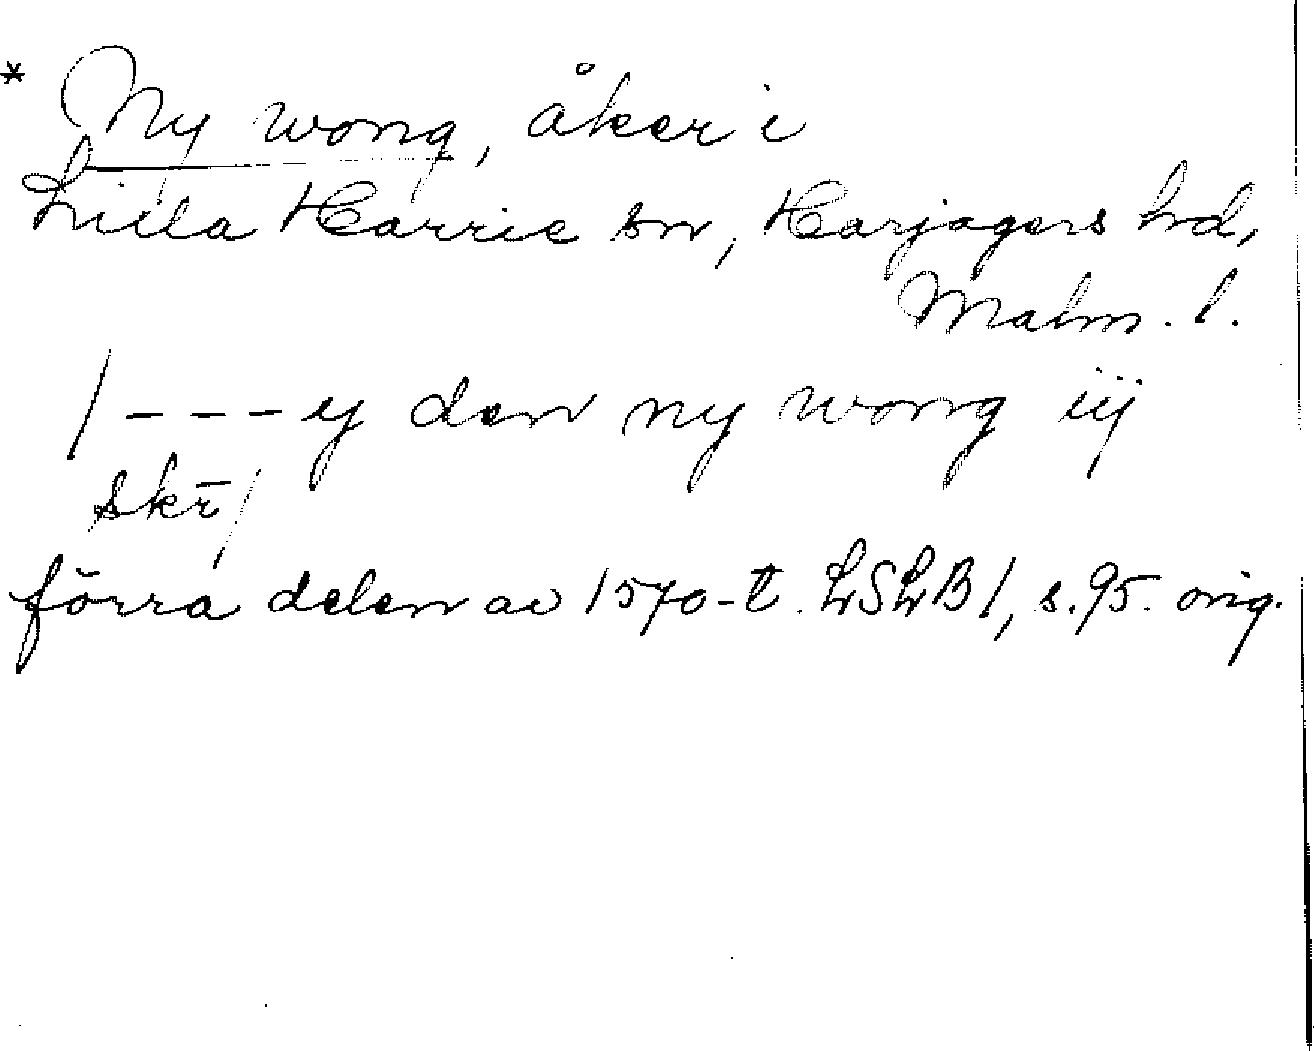 * Ny wong, åker i
Lilla Harrie sn, Harjagers hd,
Malm. l.
/ - - - y den ny wong iij
skr̄ /
förra delen av 1570-t. LSLB 1, s. 95. orig.